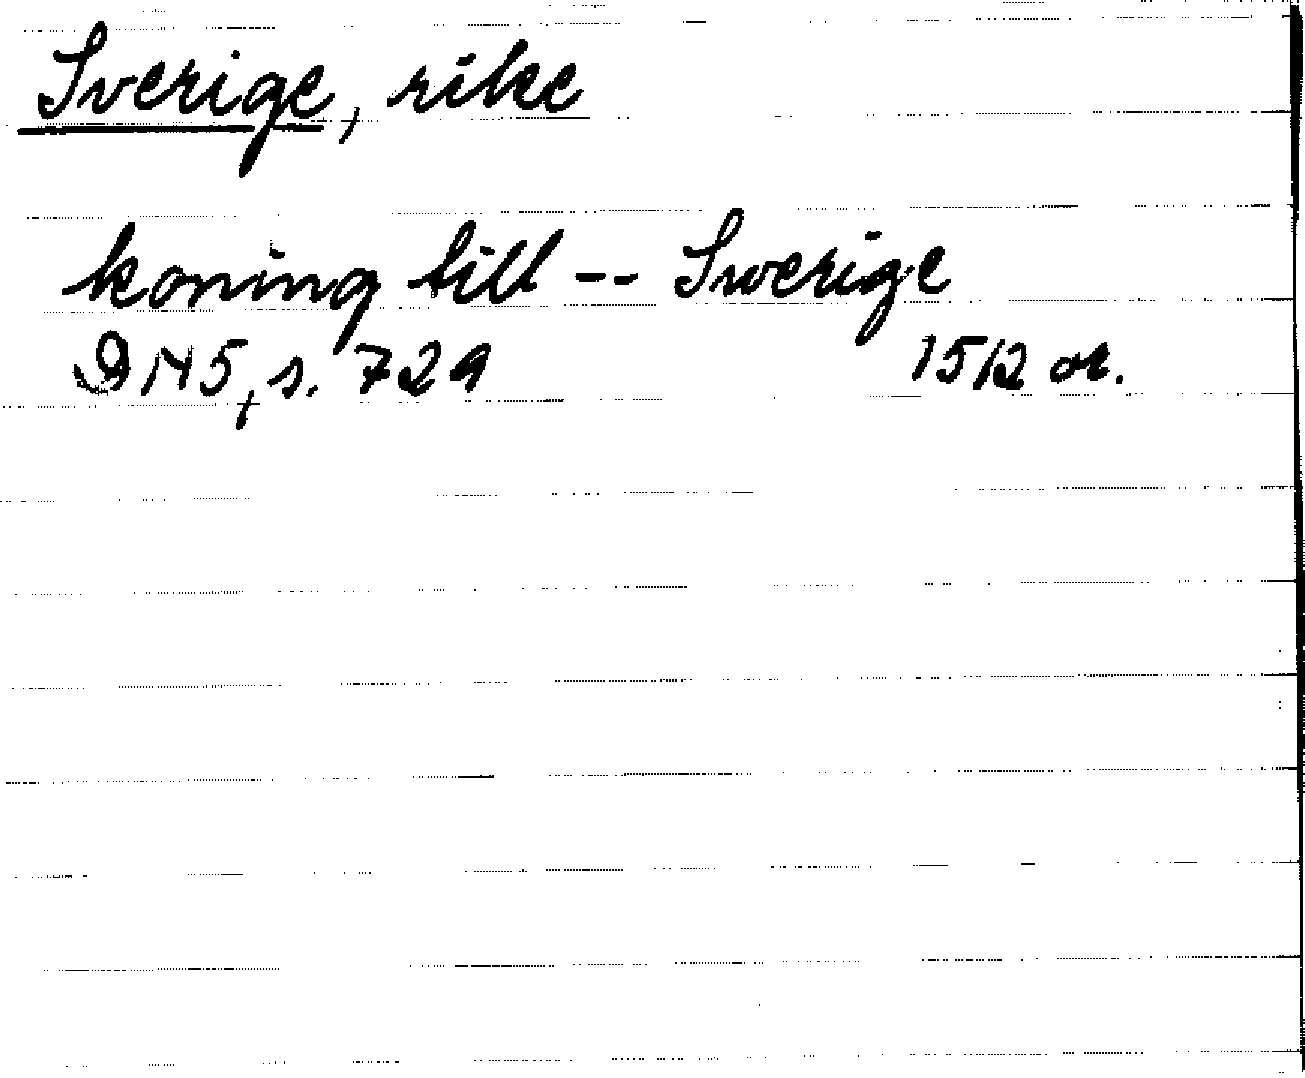 Sverige, rike
koning till -- Swerige
DN5, s. 729 1512 or.